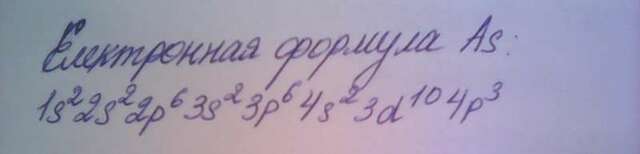 Електронная формула As:
1s²2s²2p⁶3s²3p⁶4s²3d¹⁰4p³